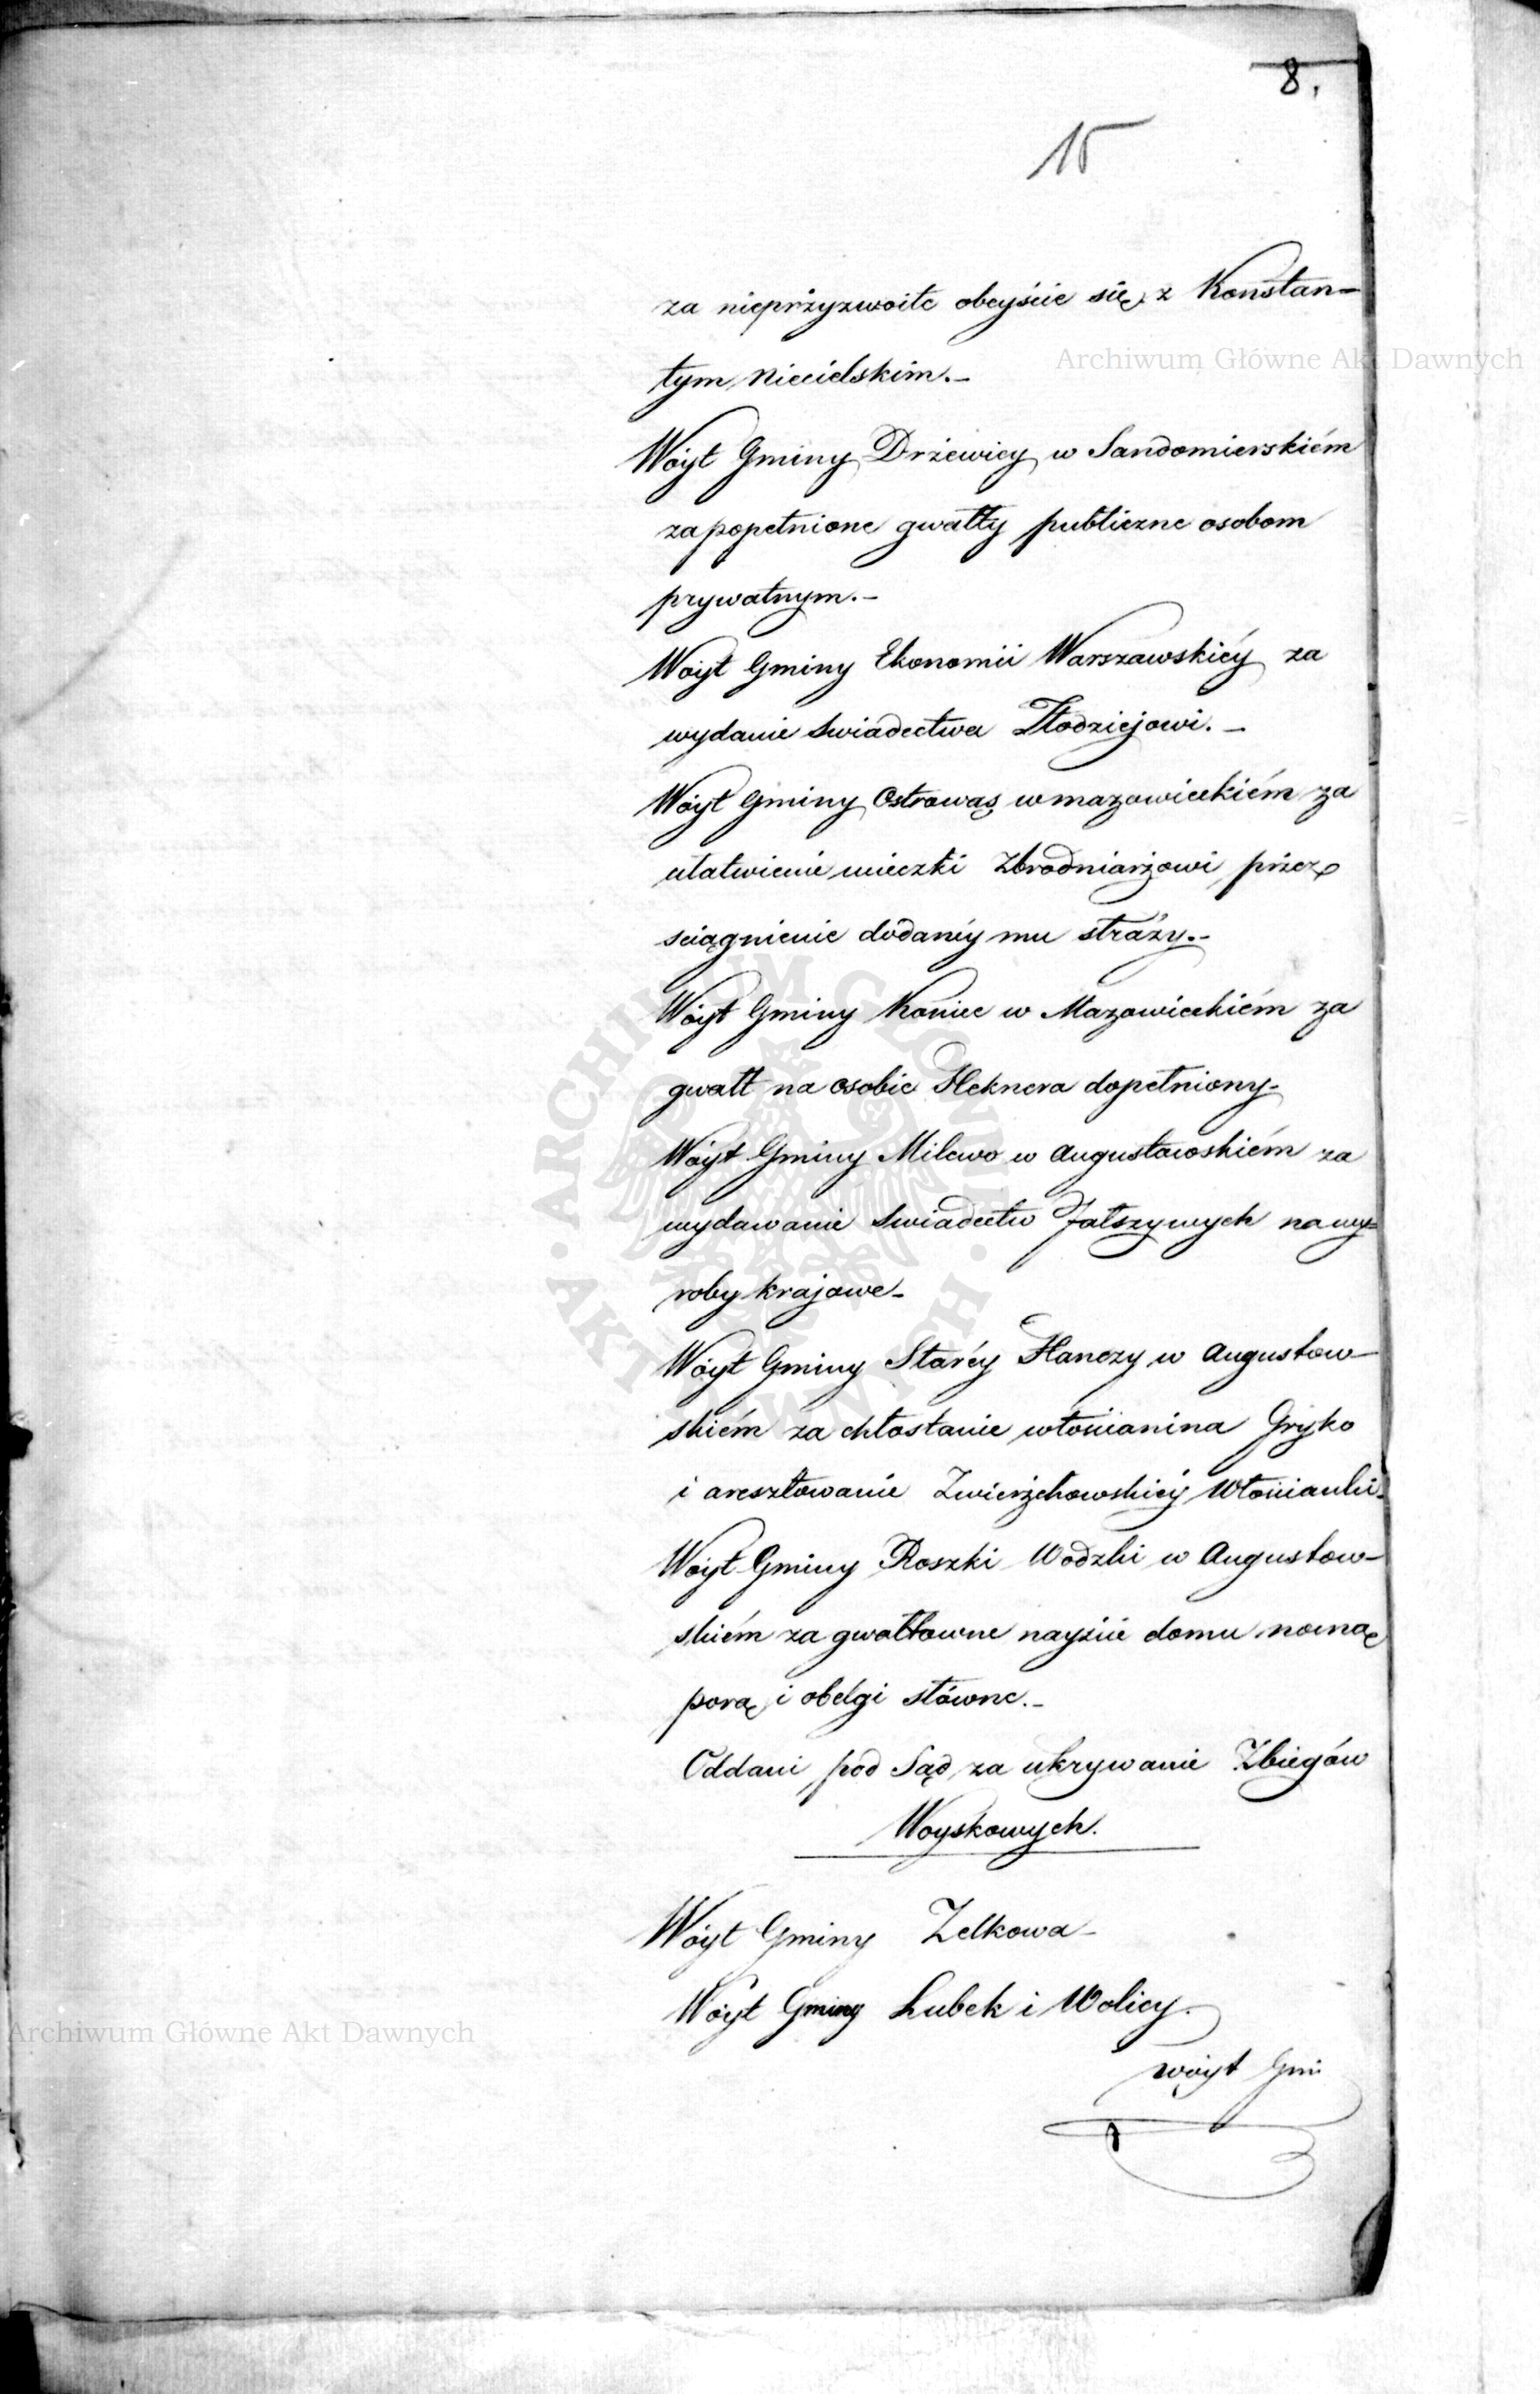 8.
15
za nieprżyzwoite obeyście się z Konstan=
tym Niecielskim.-
Wóyt Gminy Drżewicy w Sandomierskiém
za popełnione gwałty publiczne osobom
prywatnym.-
Woyt Gminy Ekonomii Warszawskiéy za
wydanie swiadectwa Złodziejowi.-
Wóyt Gminy Ostrowąs w mazowieckiém za
ułatwienie ucieczki Zbrodniarżowi przez
sciągnienie dodanéy mu straży.-
Wóyt Gminy Koniec w Mazowieckiém za
gwałt na osobie Heknera dopełniony-
Wóyt Gminy Milewo w Augustowskiém za
wydawanie swiadectw fałszywych na wy=
roby krajowe-
Wóyt Gminy Staréy Hanczy w Augustow-
skiém za chłostanie włościanina Gryko
i aresztowanie Zwierżchowskiéy Włościanki.
Wóyt Gminy Roszki Wodzki w Augustow-
skiém za gwałtowne nayście domu nocną
porą i obelgi słówne.-
Oddani pod Sąd za ukrywanie Zbiegów
Woyskowych.
Wóyt Gminy Zelkowa-
Wóyt Gminy Lubek i Wolicy.
Wóyt Gmi
Archiwum Główne Akt Dawnych
Archiwum Główne Akt Dawnych
ARCHIWUM GŁÓWNE · AKT DAWNYCH ·